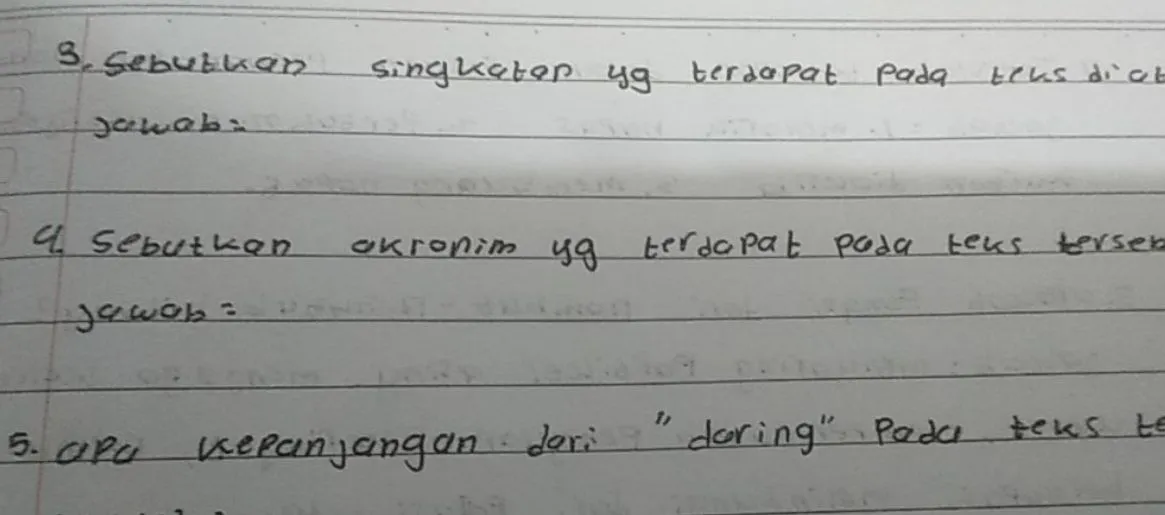 3. Sebutkan singkatan yg terdapat pada teks diat
jawab =
4. Sebutkan akronim yg terdapat pada teks terseb
jawab =
5. apa kepanjangan dari "daring" Pada teks te